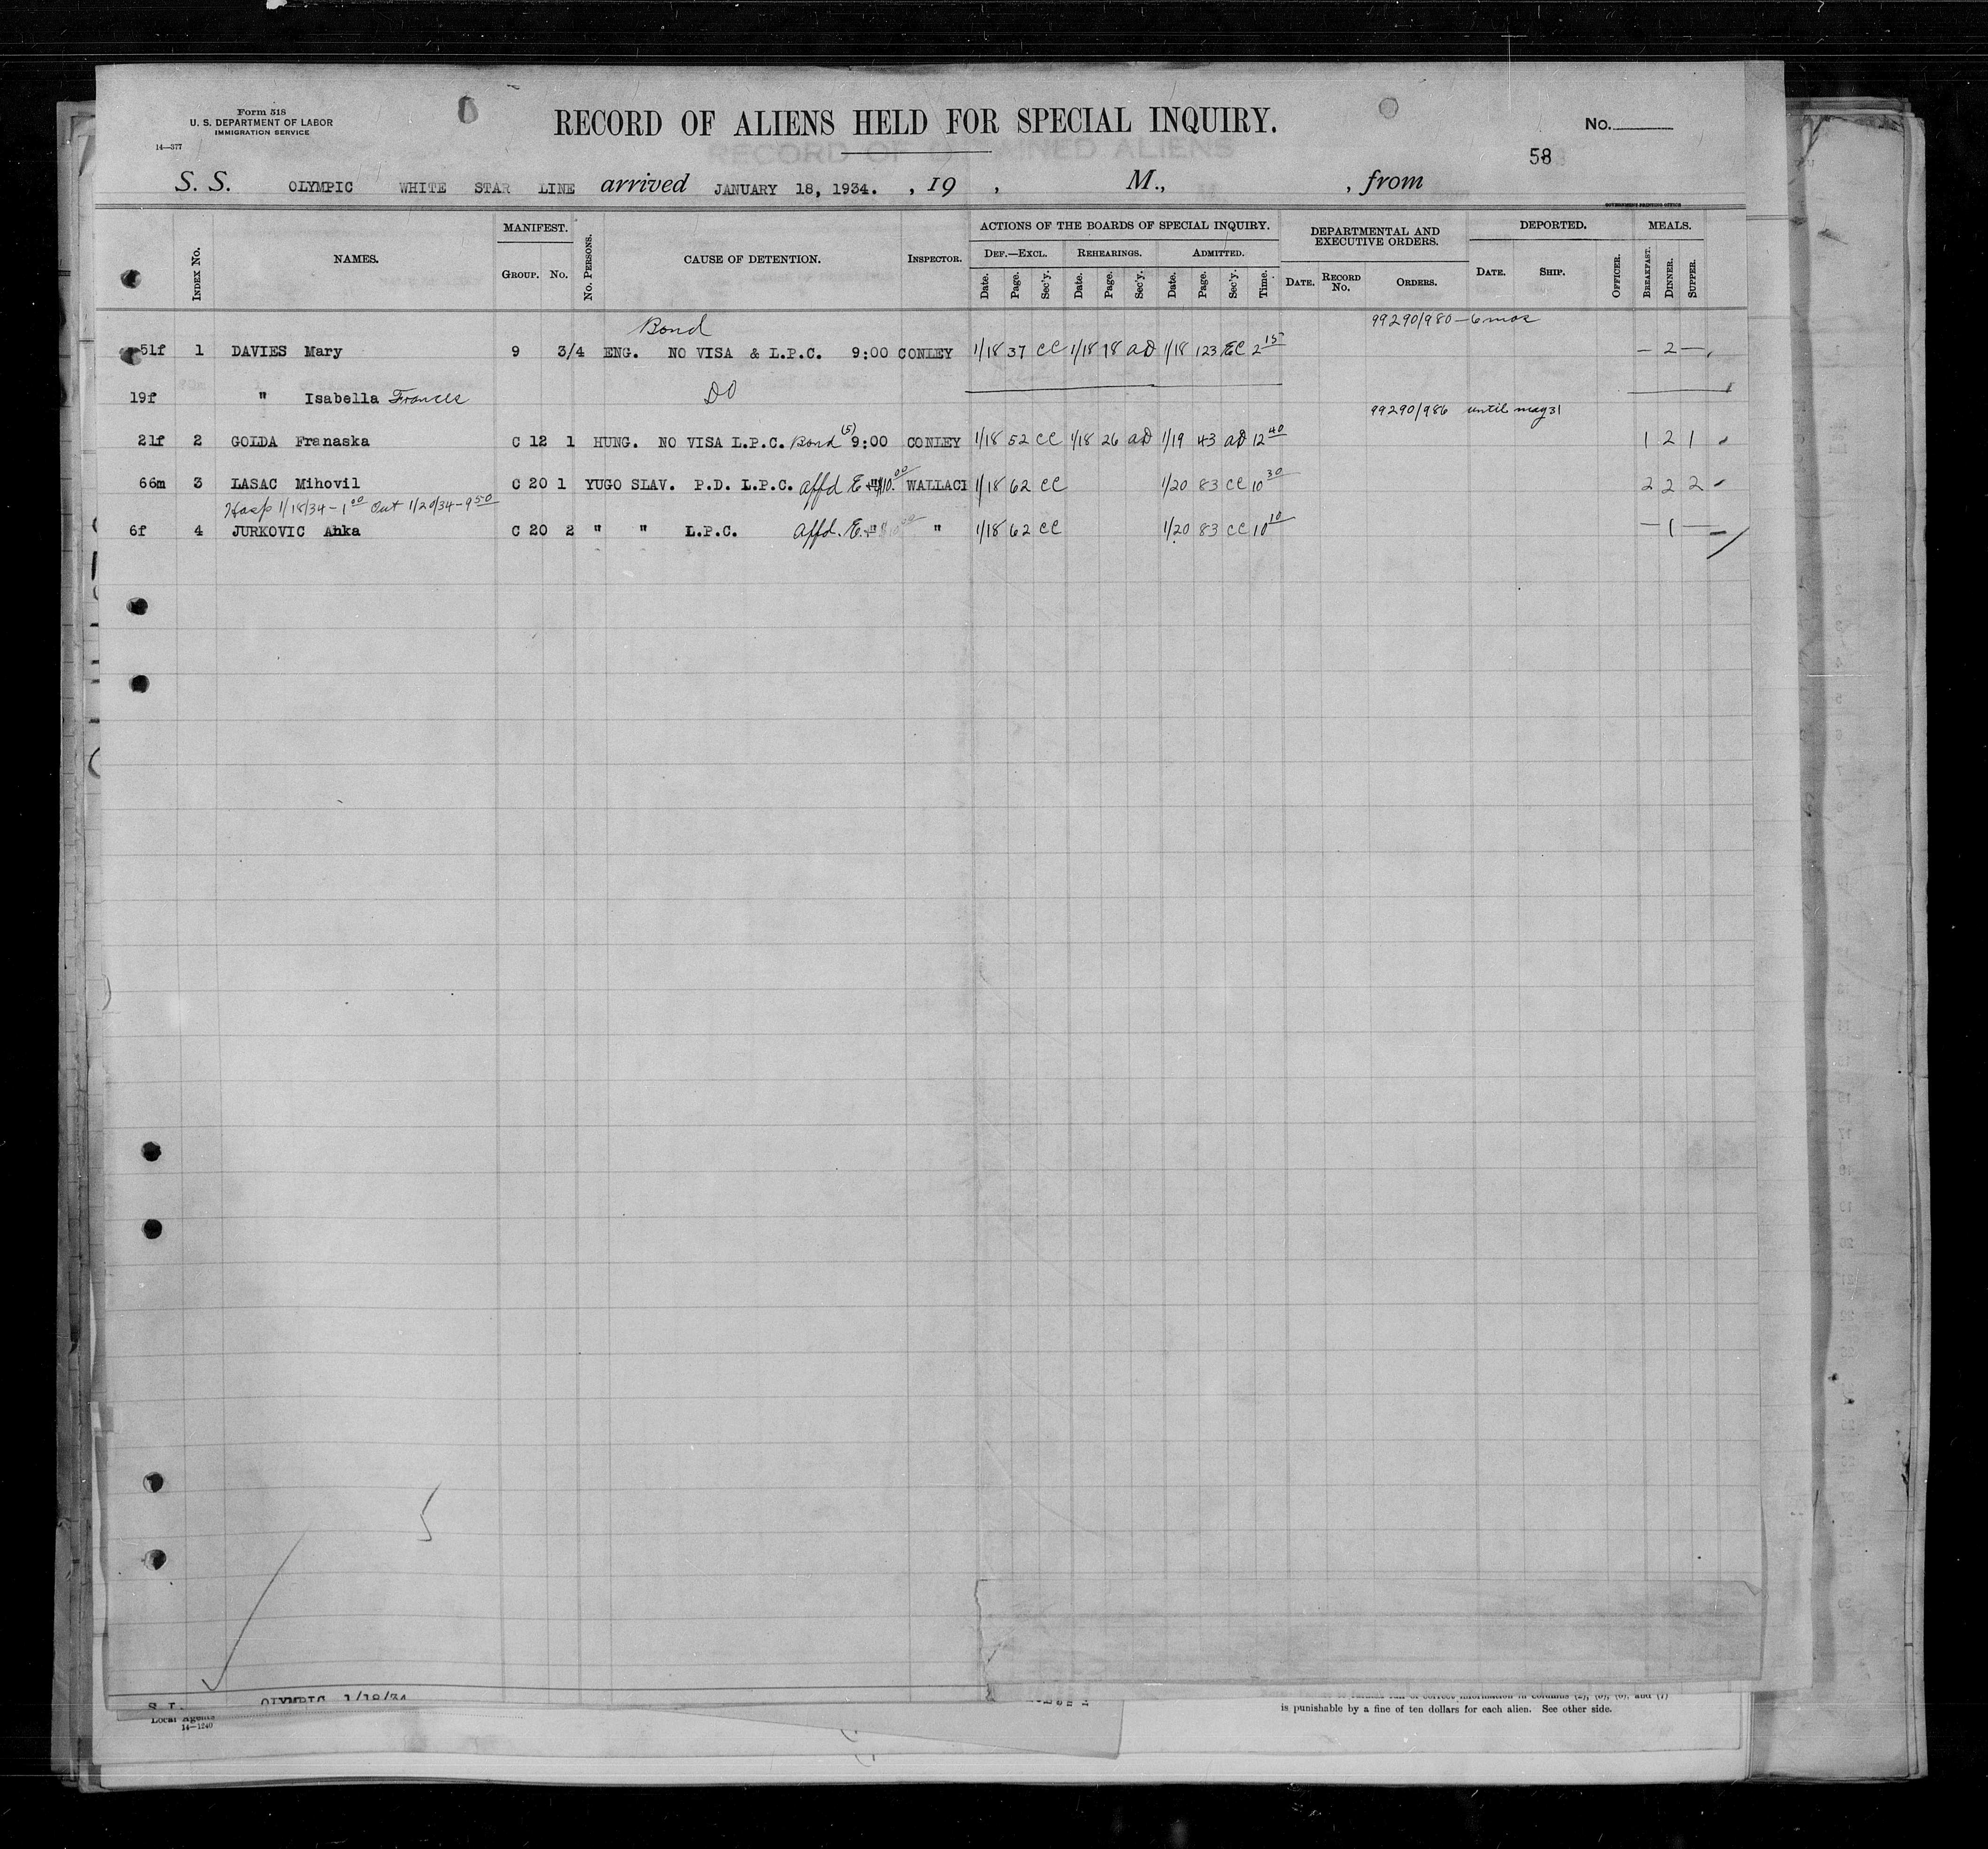 Form 518
U. S. DEPARTMENT OF LABOR
IMMIGRATION SERVICE
14—377
RECORD OF ALIENS HELD FOR SPECIAL INQUIRY.
No.
58
S. S. OLYMPIC WHITE STAR LINE arrived JANUARY 18, 1934. , 19 , M., , from
GOVERNMENT PRINTING OFFICE
INDEX No. NAMES. MANIFEST. GROUP. No. No. PERSONS. CAUSE OF DETENTION. INSPECTOR.
ACTIONS OF THE BOARDS OF SPECIAL INQUIRY. DEF.—EXCL. REHEARINGS. ADMITTED.
Date. Page. Sec'y. Date. Page. Sec'y. Date. Page. Sec'y. Time.
DEPARTMENTAL AND EXECUTIVE ORDERS. DATE. RECORD No. ORDERS.
DEPORTED. DATE. SHIP. OFFICER.
MEALS. BREAKFAST. DINNER. SUPPER.
Bond 99290/980 — 6 mos
51f 1 DAVIES Mary 9 3/4 ENG. NO VISA & L.P.C. 9:00 CONLEY 1/18 37 CC 1/18 18 AD 1/18 123 EC 2 15 — 2 —
19f " Isabella Frances DO
99290/986 until may 31
21f 2 GOLDA Franaska C 12 1 HUNG. NO VISA L.P.C. Bond (5) 9:00 CONLEY 1/18 52 CC 1/18 26 AD 1/19 43 AD 12 40 1 2 1
66m 3 LASAC Mihovil C 20 1 YUGO SLAV. P.D. L.P.C. affd E 10.00 WALLACE 1/18 62 CC 1/20 83 CC 10 30 2 2 2
Hosp 1/18/34 - 1 00 Out 1/20/34 - 9 50
6f 4 JURKOVIC Anka C 20 2 " " L.P.C. affd. E. " 1/18 62 CC 1/20 83 CC 10 10 — 1 —
S.I. OLYMPIC 1/18/34
Local Agents
14—1240
is punishable by a fine of ten dollars for each alien. See other side.